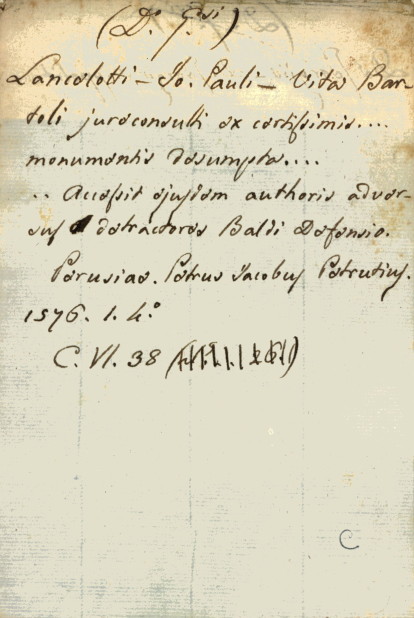 (D. G.si)
Lancelotti – Jo. Pauli – Vita Bar-
toli jureconsulti ex certissimis....
monumentis desumpta....
.. Accessit ejusdem authoris adver-
sus detractores Baldi Defensio.
Perusiae. Petrus Jacobus Petrutius.
1576. 1. 4.°
C. VI. 38
C